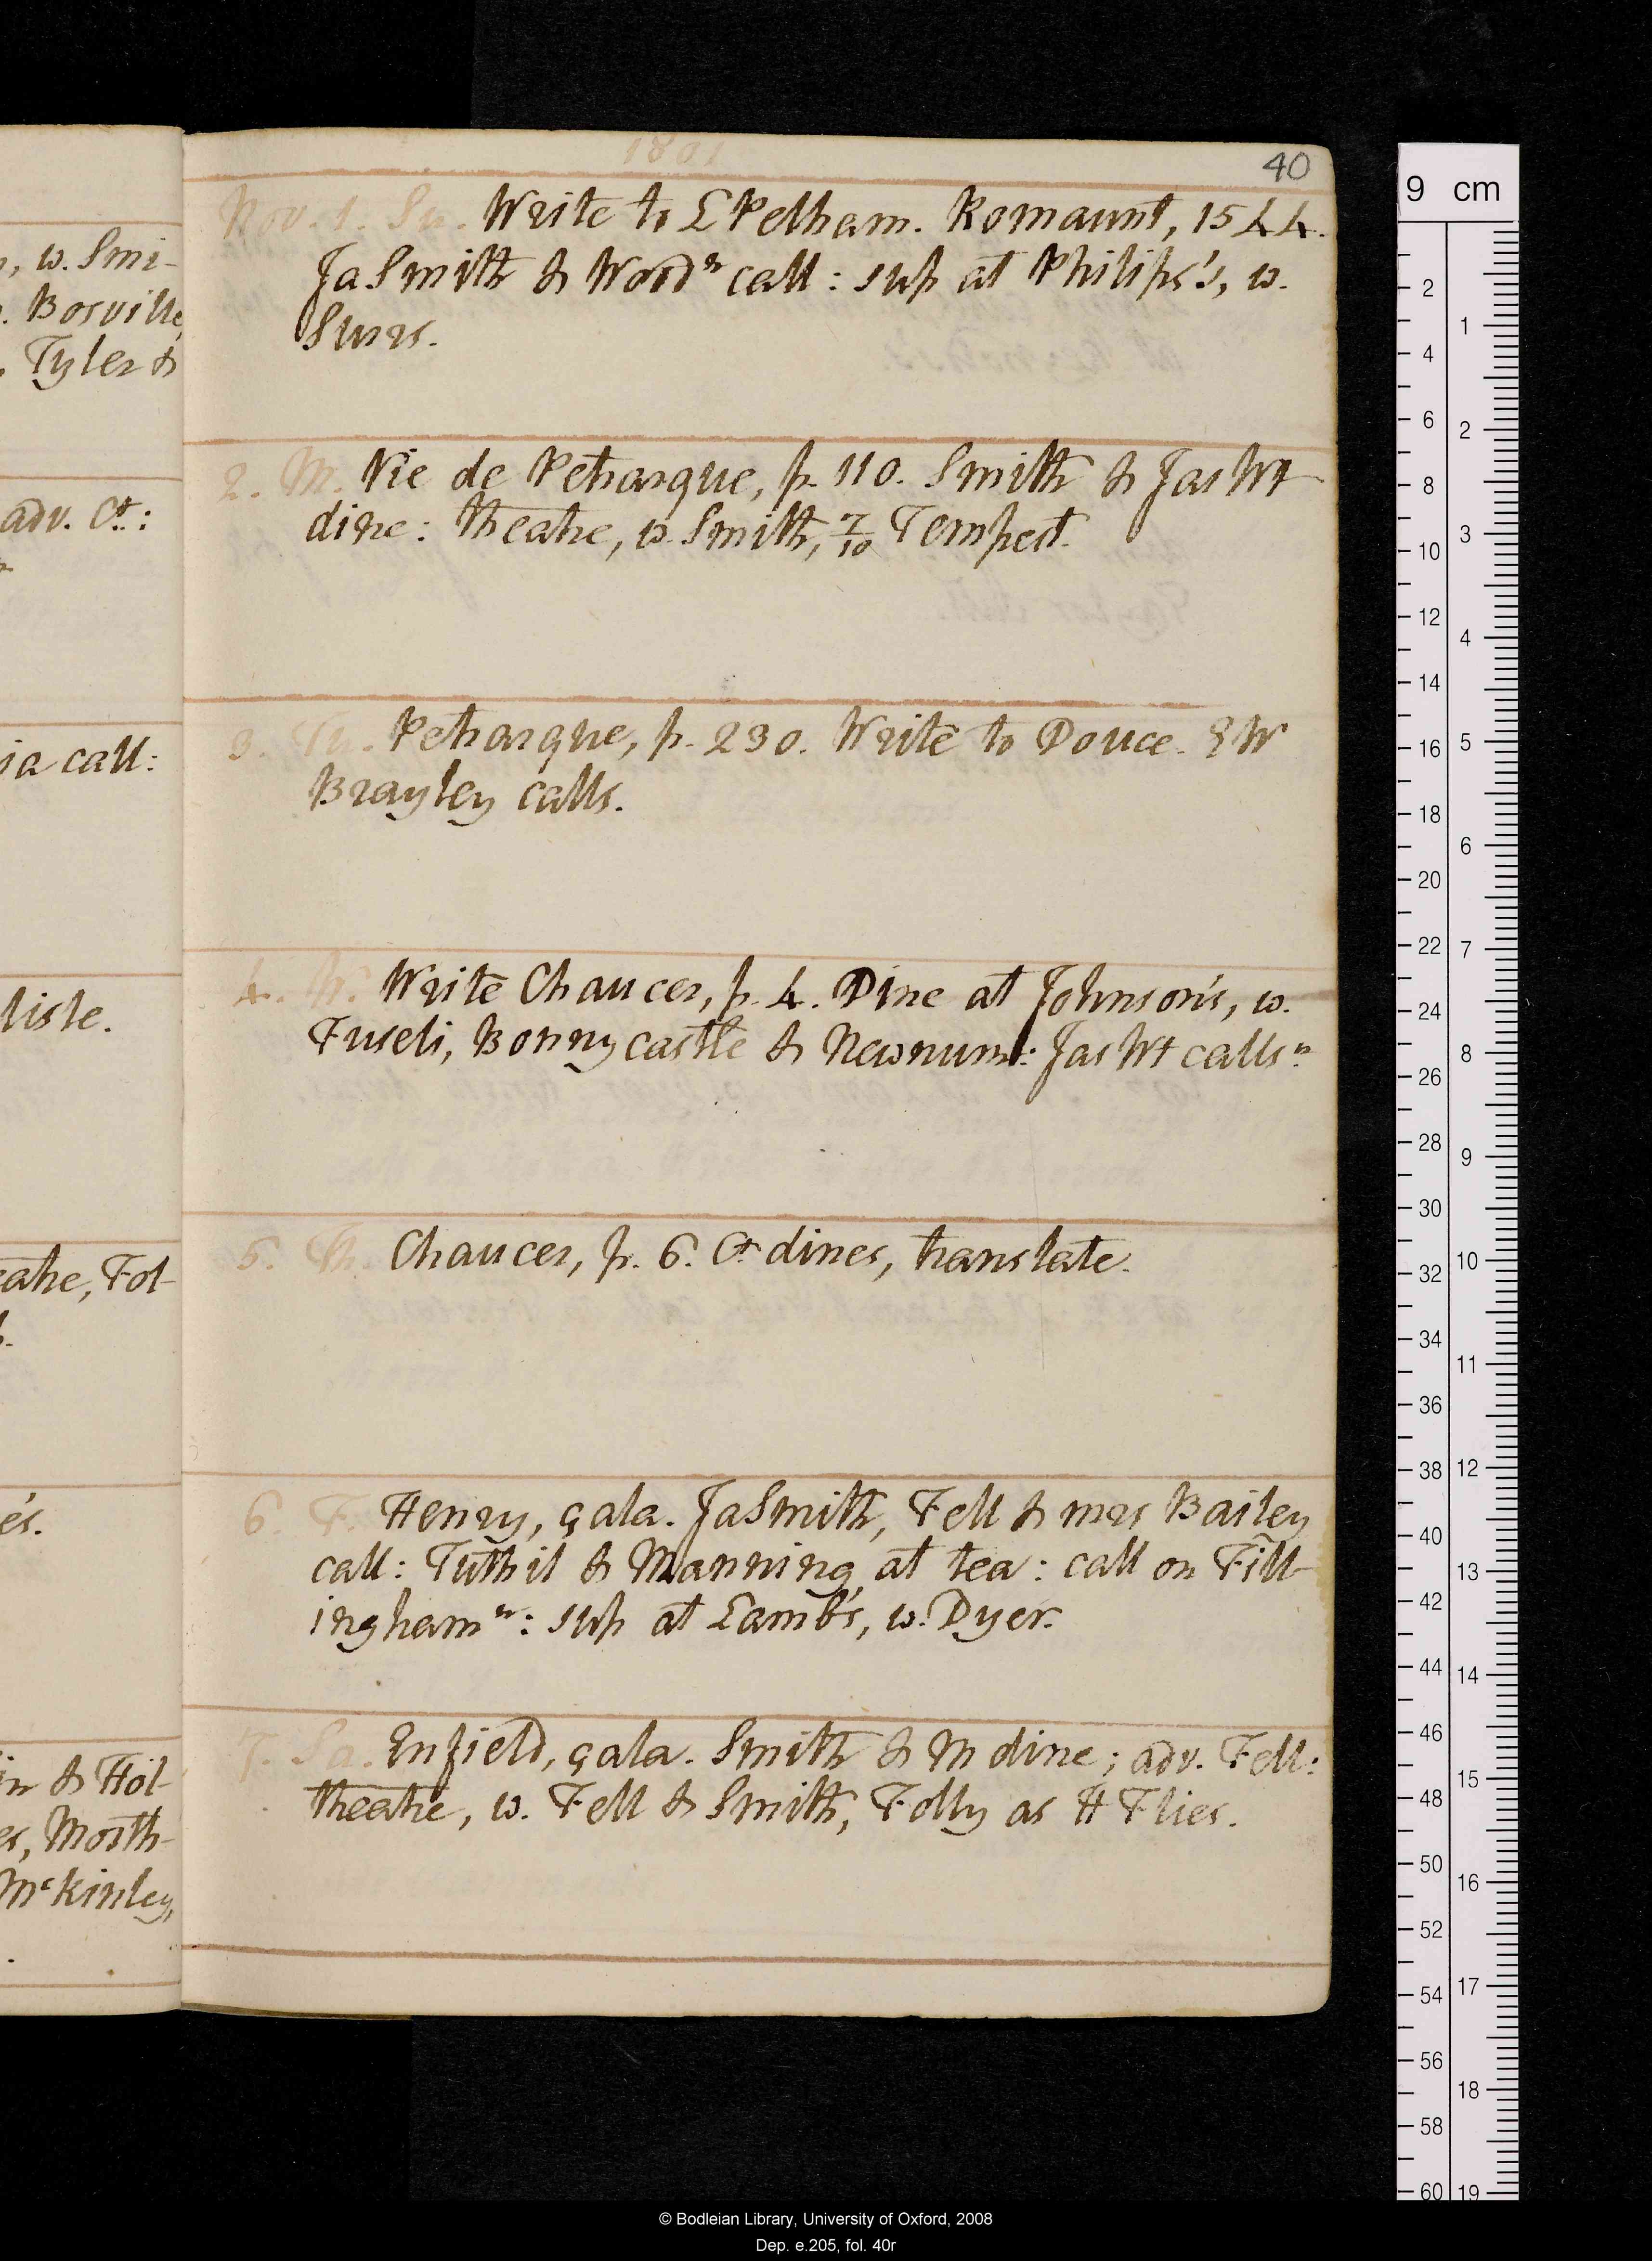 1801
40
Nov. 1. Su. Write to L Pelham. Romaunt, 1544.
JaSmith & Woodn call: sup at Philips's, w.
Surrs.
2. M. Vie de Petrarque, p. 110. Smith & Jas Wt
dine: theatre, w. Smith, 7/10 Tempest.
3. Tu. Petrarque, p. 230. Write to Douce. EW
Brayley calls.
4. W. Write Chaucer, p. 4. Dine at Johnson's, w.
Fuseli, Bonnycastle & Newnum: Jas Wt calls n.
5. Th. Chaucer, p. 6. Ct dines, translate.
6. F. Henry, gala. JaSmith, Fell & mrs Bailey
call: Tuthil & Manning at tea: call on Fill-
ingham n: sup at Lamb's, w. Dyer.
7. Sa. Enfield, gala. Smith & M dine; adv. Fell:
theatre, w. Fell & Smith, Folly as it Flies.
, w. Smi-
. Bosville,
. Tyler &
adv. Ct:
ia call:
lisle.
eatre, Fol-
es.
in & Hol-
es, North-
McKinley,
9 cm
2
4
6
8
10
12
14
16
18
20
22
24
26
28
30
32
34
36
38
40
42
44
46
48
50
52
54
56
58
60
1
2
3
4
5
6
7
8
9
10
11
12
13
14
15
16
17
18
19
© Bodleian Library, University of Oxford, 2008
Dep. e.205, fol. 40r